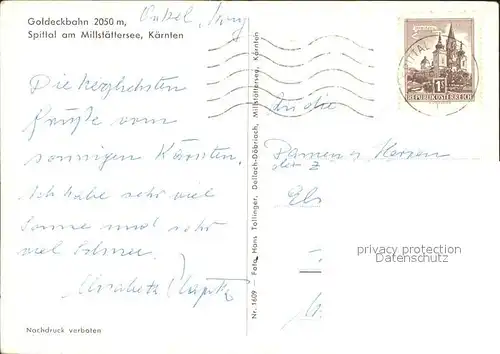 Goldeckbahn 2050 m,
Spittal am Millstättersee, Kärnten
Onkel,
Die herzlichsten
Grüße vom
sonnigen Kärnten.
Ich habe sehr viel
Sonne und sehr
viel Schnee.
Elisabeth
Nachdruck verboten
Nr. 1609 – Foto Hans Tollinger, Dellach-Döbriach, Millstättersee, Kärnten
SPITTAL
1S
REPUBLIK ÖSTERREICH
An die
Damen u Herren
der Z
El
privacy protection
Datenschutz